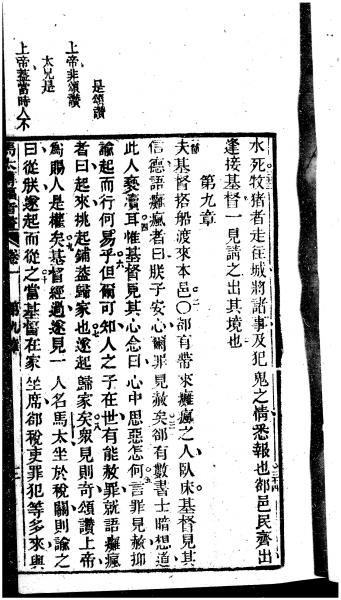 水死牧猪者走往城將諸事及犯鬼之情悉報也郤邑民齊出
逢接基督一見請之出其境也
第九章
夫基督搭船渡來本邑○郤有帶來癱瘋之人臥床基督見其
信德語癱瘋者曰朕子安心爾罪見赦矣郤有數書士暗想道
此人褻瀆耳惟基督見其心念曰心中思惡怎何言罪見赦抑
諭起而行何易乎但爾可知人之子在世有能赦罪就語癱瘋
者曰起來挑起鋪蓋歸家也遂起歸家矣衆見則奇頌讚上帝
爲賜人是權矣基督經過遂見一人名馬太坐於稅關則諭之
曰從朕遂起而從之當基督在家坐席郤稅吏罪犯等多來與
是頌讚
上帝非頌讚
太兄是
上帝蓋當時人不
卷一 第九章